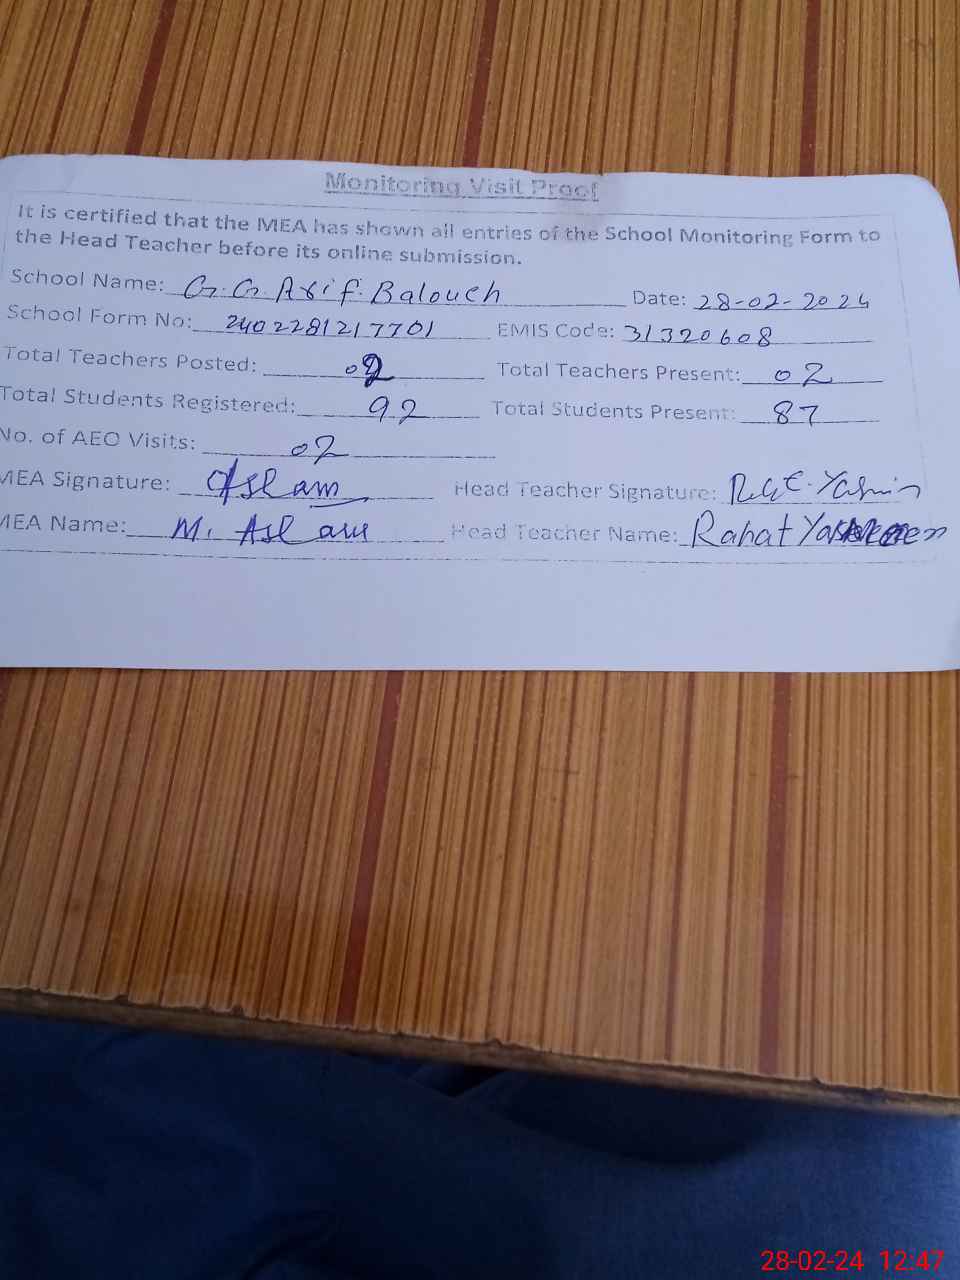 Monitoring Visit Proof
It is certified that the MEA has shown all entries of the School Monitoring Form to
the Head Teacher before its online submission.
School Name: G.G. Arif. Balouch Date: 28-02-2024
School Form No: 2402281217701 EMIS Code: 31320608
Total Teachers Posted: 02 Total Teachers Present: 02
Total Students Registered: 92 Total Students Present: 87
No. of AEO Visits: 02
MEA Signature: Aslam Head Teacher Signature: Yasmin
MEA Name: M. Aslam Head Teacher Name: Rahat
28-02-24 12:47